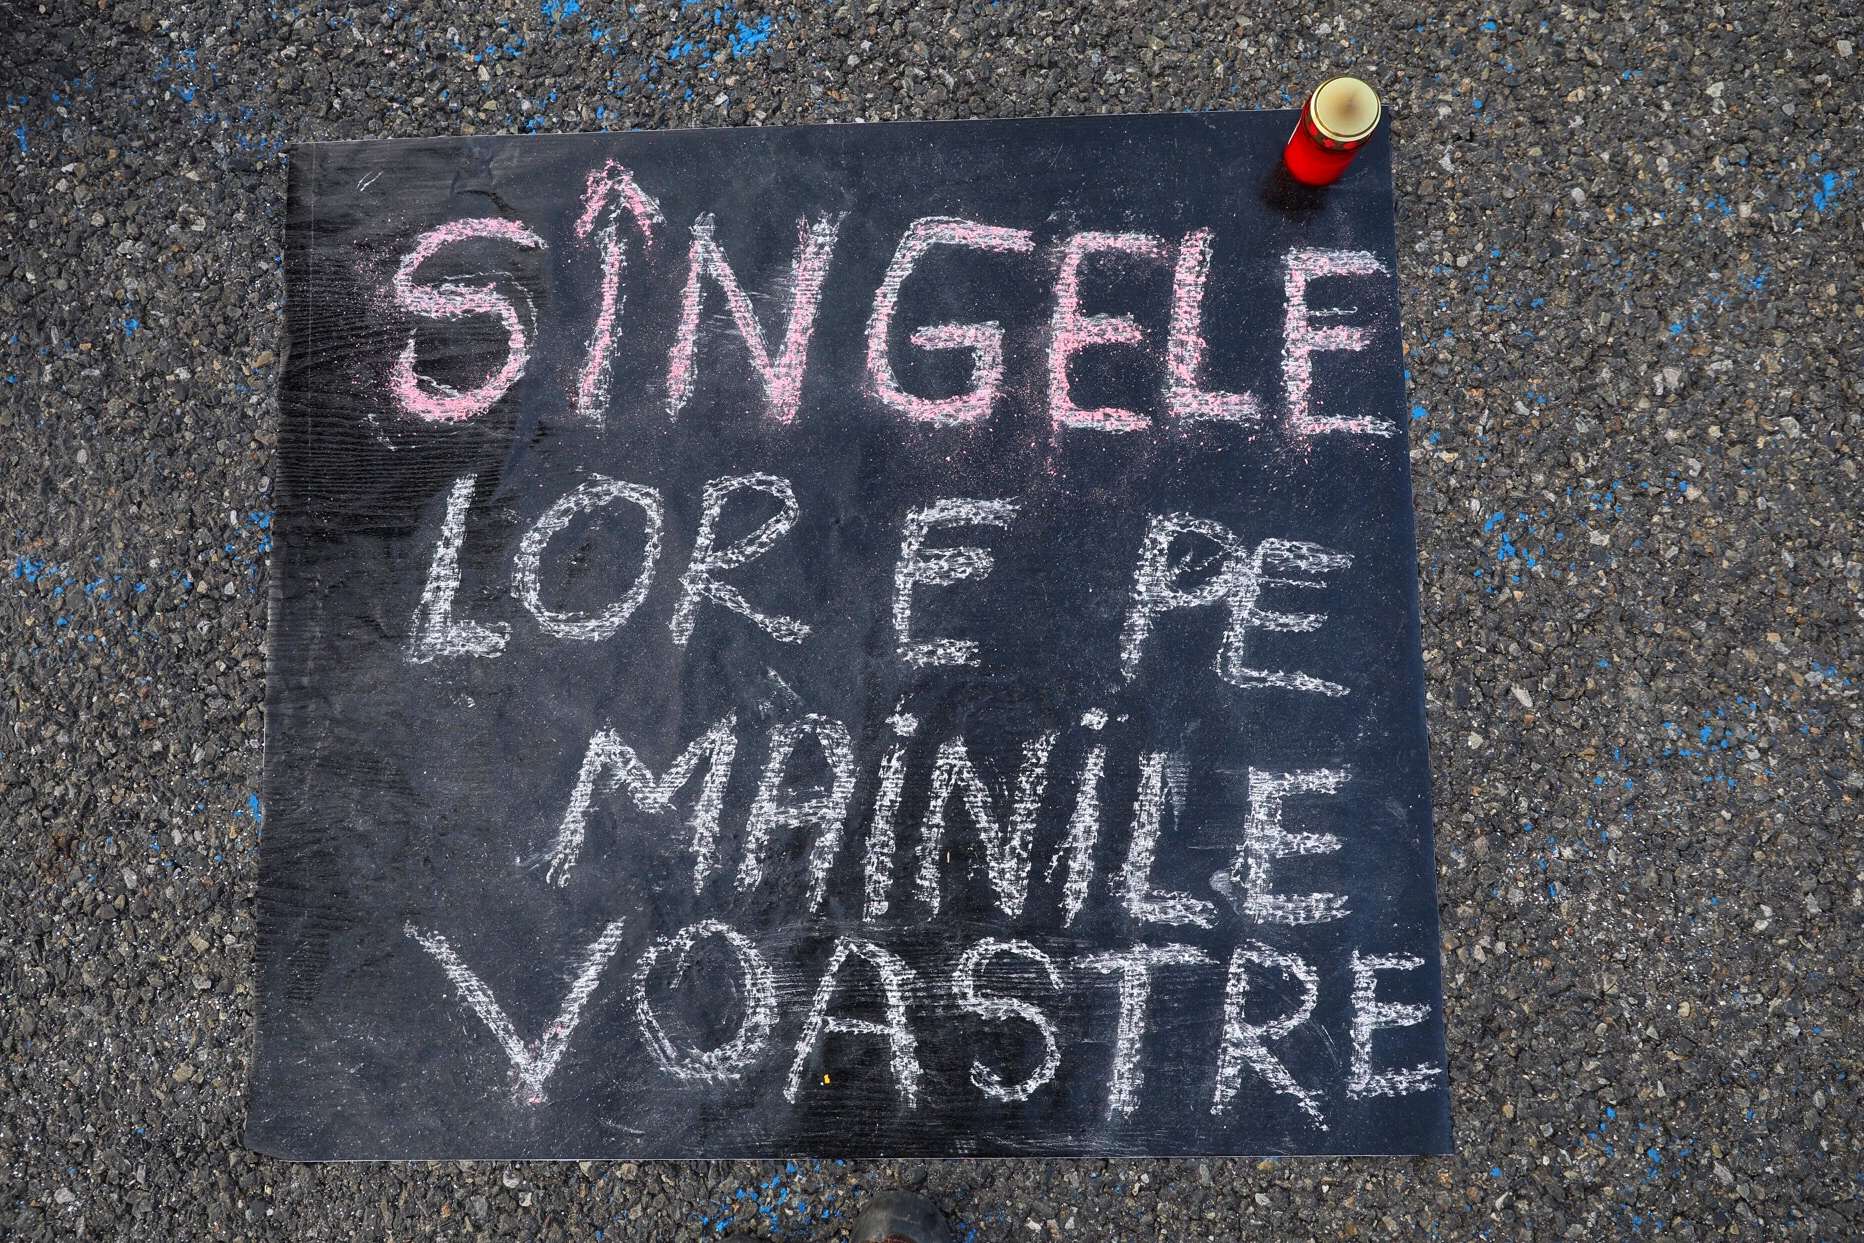 SÎNGELE
LOR E PE
MÂINILE
VOASTRE